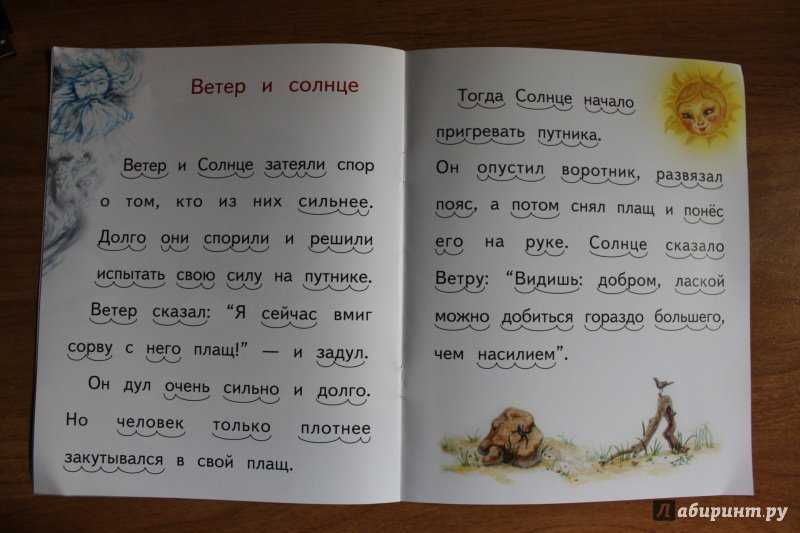 Ветер и солнце
Ветер и Солнце затеяли спор
о том, кто из них сильнее.
Долго они спорили и решили
испытать свою силу на путнике.
Ветер сказал: “Я сейчас вмиг
сорву с него плащ!” — и задул.
Он дул очень сильно и долго.
Но человек только плотнее
закутывался в свой плащ.
Тогда Солнце начало
пригревать путника.
Он опустил воротник, развязал
пояс, а потом снял плащ и понёс
его на руке. Солнце сказало
Ветру: “Видишь: добром, лаской
можно добиться гораздо большего,
чем насилием”.
Лабиринт.ру